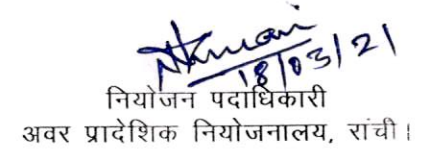 18/03/21
नियोजन पदाधिकारी
अवर प्रादेशिक नियोजनालय, रांची।